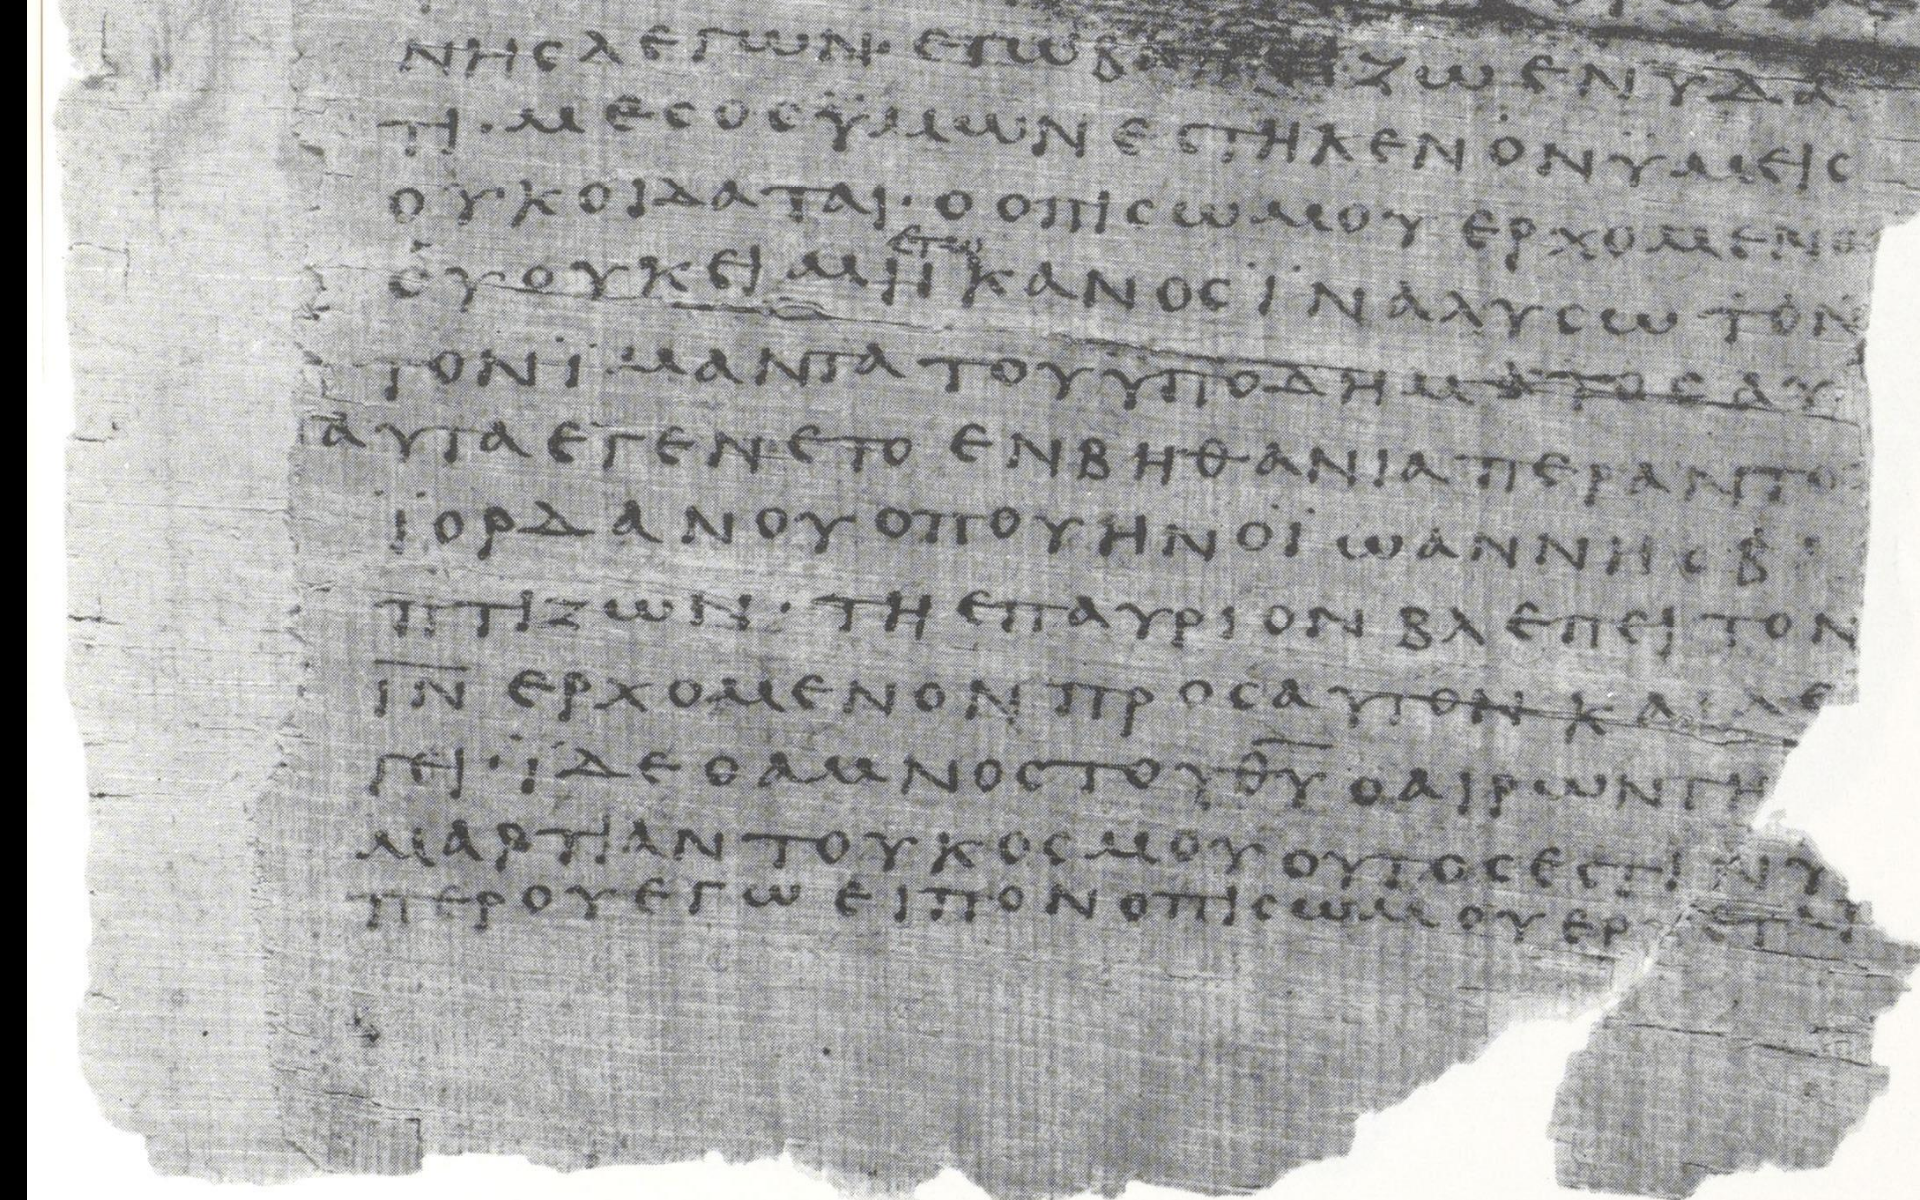 ΝΗСΛΕΓωΝ· ΕΓωΒΑΠΤΙΖωΕΝΥΔΑ
ΤΙ· ΜΕСΟСΫΜωΝΕСΤΗΚΕΝ ὉΝΫΜΕΙС
ΟΥΚΟΙΔΑΤΑΙ· ΟΟΠΙСωΜΟΥ ΕΡΧΟΜΕΝΟ
ΕΓω
СΥΟΥΚΕΙΜΗΙΚΑΝΟСΪΝΑΛΥСω ΤΟΝ
ΤΟΝΪΜΑΝΤΑΤΟΥΫΠΟΔΗΜΑΤΟСΑΥ
ΑΥΤΑΕΓΕΝΕΤΟ ΕΝΒΗΘΑΝΙΑΠΕΡΑΝΤΟ
ΪΟΡΔΑΝΟΥΟΠΟΥΗΝΟΪωΑΝΝΗСΒ
ΠΤΙΖωΝ· ΤΗΕΠΑΥΡΙΟΝΒΛΕΠΕΙΤΟΝ
Ι̅Ν̅ ΕΡΧΟΜΕΝΟΝΠΡΟСΑΥΤΟΝΚΑΙΛΕ
ΓΕΙ· ΪΔΕΟΑΜΝΟСΤΟΥΘ̅Υ̅ ΟΑΙΡωΝΤΗ
ΜΑΡΤΙΑΝΤΟΥΚΟСΜΟΥΟΥΤΟСΕСΤΙΝΥ
ΠΕΡΟΥΕΓωΕΙΠΟΝΟΠΙСωΜΟΥΕΡΧΕΤΑΙ